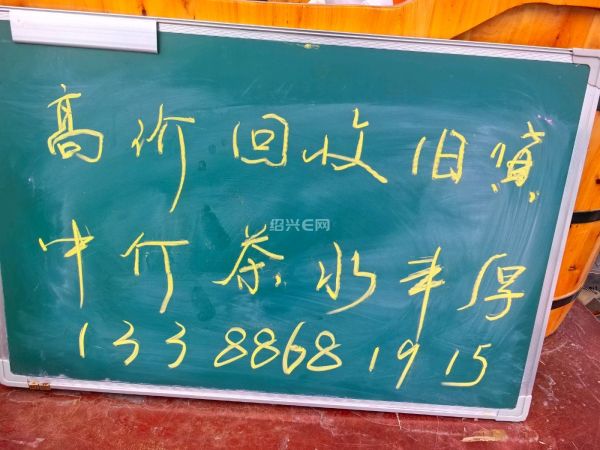 高价回收旧货
中介茶水丰厚
13388681915
绍兴E网